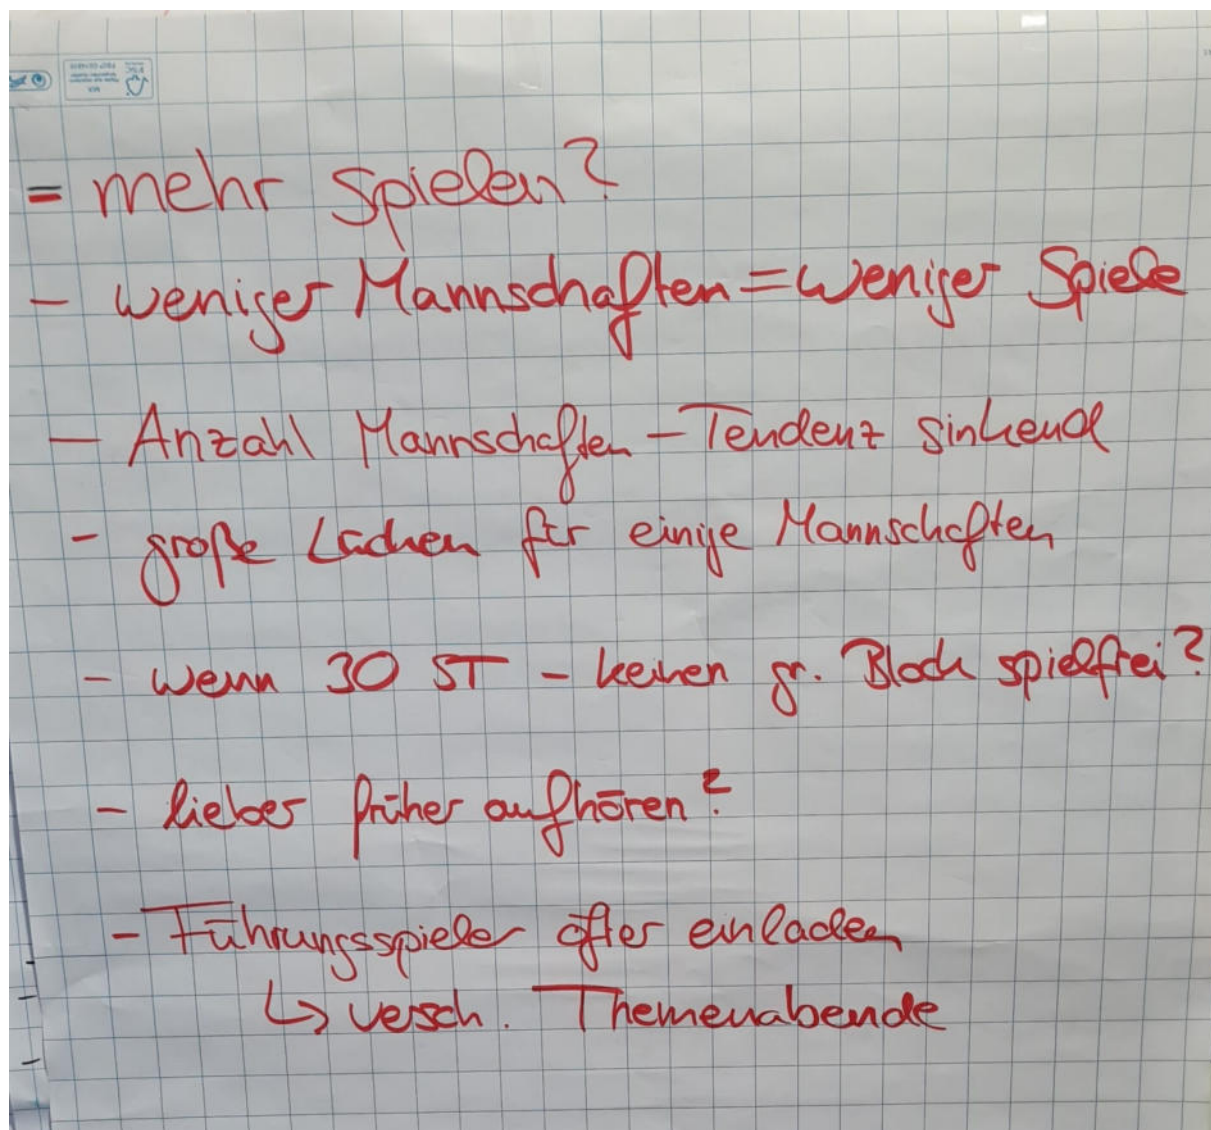 = mehr Spielen?
- weniger Mannschaften = weniger Spiele
- Anzahl Mannschaften - Tendenz sinkend
- große Lücken für einige Mannschaften
- wenn 30 ST - keinen gr. Block spielfrei?
- lieber früher aufhören?
- Führungsspieler öfter einladen
↳ versch. Themenabende